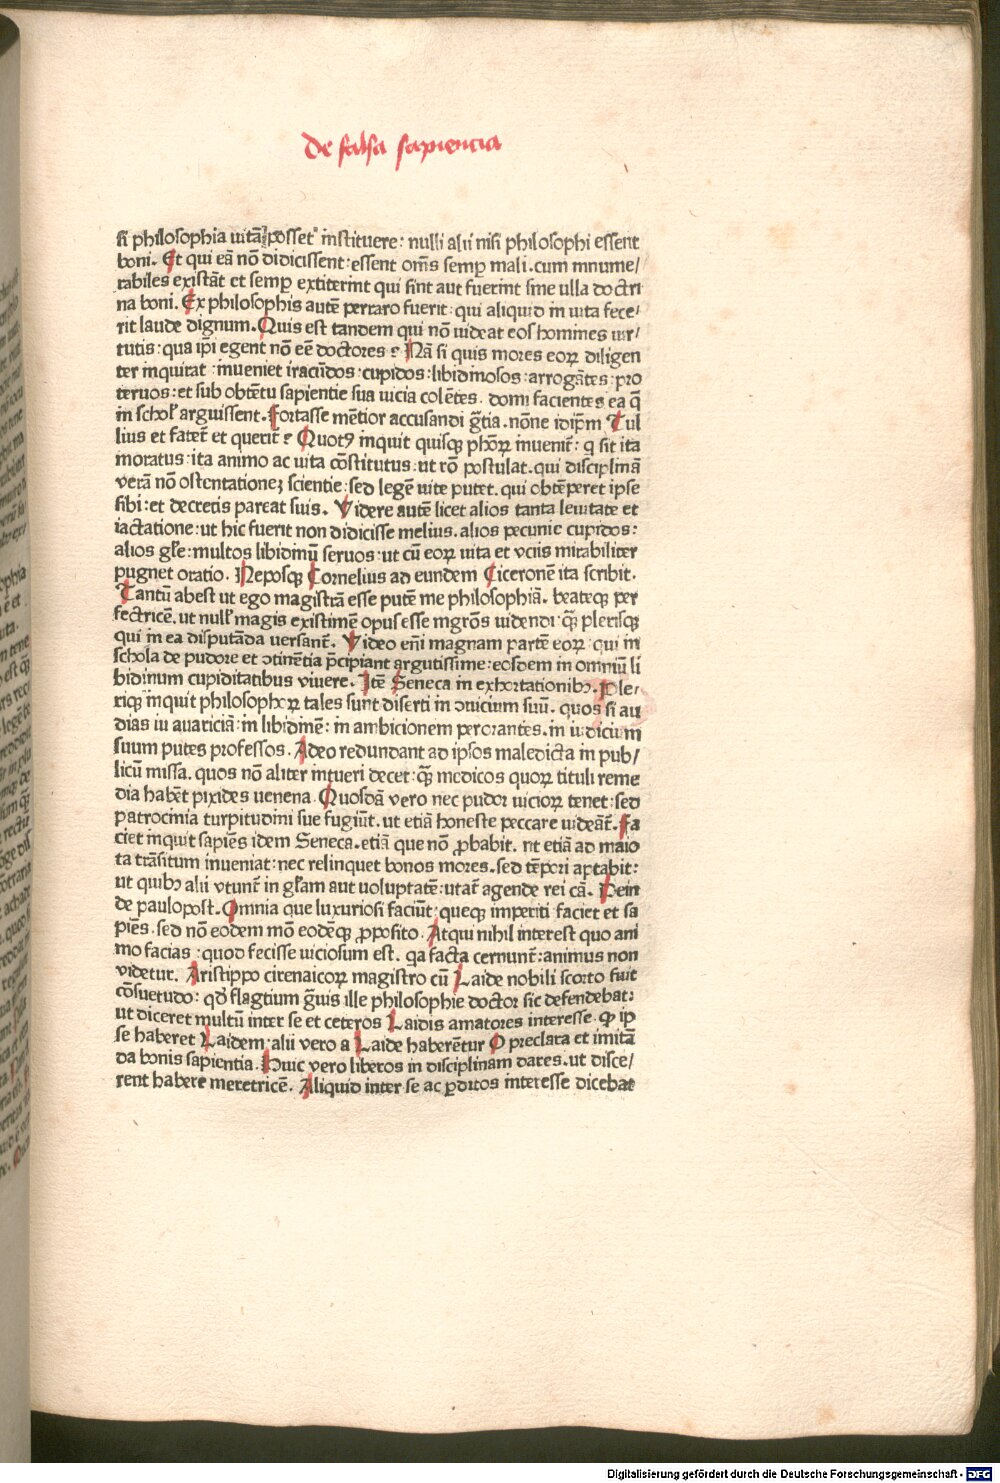 De falsa sapiencia
si philosophia uitā posset instituere: nulli alii nisi philosophi essent
boni. Et qui eā nō didicissent: essent om̄s semp̱ mali. cum innume/
rabiles existāt et semp̱ extiterint qui sint aut fuerint sine ulla doctri
na boni. Ex philosophis autē perraro fuerit: qui aliquid in uita fece/
rit laude dignum. Quis est tandem qui nō uideat eos homines uir/
tutis: qua ip̄i egent nō eē doctores? Nā si quis mores eoꝝ diligen
ter inquirat: inueniet iracūdos: cupidos: libidinosos: arrogātes: pro
teruos: et sub obtētu sapientie sua uicia colētes. domi facientes ea q̄
in schol' arguissent. Fortasse mētior accusandi gr̄tia. nōne idip̄m Tul
lius et fatet̄ et querit̄? Quotꝰ inquit quisqꝫ ph̄oꝝ inuenit̄: q sit ita
moratus: ita animo ac uita cōstitutus: ut rō postulat. qui disciplinā
verā nō ostentationeꝫ scientie: sed legē uite putet. qui obtēperet ipse
sibi: et decretis pareat suis. Videre autē licet alios tanta leuitate et
iactatione: ut hic fuerit non didicisse melius. alios pecunie cupidos:
alios gl'e: multos libidinū seruos: ut cū eoꝝ uita et vciis mirabiliter
pugnet oratio. Neposqꝫ Cornelius ad eundem Ciceronē ita scribit.
Tantū abest ut ego magistrā esse putē me philosophiā. beateqꝫ per
fectricē. ut null' magis existimē opus esse mgr̄os uidendi: qꝫ̄ plerisqꝫ
qui in ea disputāda versant̄. Video en̄i magnam partē eoꝝ: qui in
schola de pudore et ↄtinētia p̄cipiant argutissime: eosdem in omniū li
bidinum cupiditatibus viuere. Itē Seneca in exhortationibꝫ. Ple/
riqꝫ inquit philosophoꝝ tales sunt diserti in ↄuicium suū. quos si au
dias in auariciā: in libidinē: in ambicionem perorantes. in iudicium
suum putes professos. Adeo redundant ad ipsos maledicta in pub/
licū missa. quos nō aliter intueri decet: qꝫ̄ medicos quoꝝ tituli reme
dia habēt pixides uenena. Quosdā vero nec pudor uicioꝝ tenet: sed
patrocinia turpitudini sue fugiūt. ut etiā honeste peccare uideāt̄. Fa
ciet inquit sapiēs idem Seneca. etiā que nō ꝓbabit. ut etiā ad maio
ra trāsitum inueniat: nec relinquet bonos mores. sed tēpori aptabit:
ut quibꝫ alii vtunt̄ in gl'am aut uoluptatē: utat̄ agende rei cā. Dein
de paulopost. Omnia que luxuriosi faciūt: queqꝫ imperiti faciet et sa
piēs. sed nō eodem mō eodēqꝫ ꝓposito. Atqui nihil interest quo ani
mo facias: quod fecisse uiciosum est. qa facta cernunt̄: animus non
videtur. Aristippo cirenaicoꝝ magistro cū Laide nobili scorto fuit
cōsuetudo: qd̄ flagtium g̃uis ille philosophie doctor sic defendebat:
ut diceret multū inter se et ceteros Laidis amatores interesse. ꝙ ip
se haberet Laidem: alii vero a Laide haberētur O preclara et imitā
da bonis sapientia. Huic vero liberos in disciplinam dares. ut disce/
rent habere meretricē. Aliquid inter se ac ꝑditos interesse dicebat
Digitalisierung gefördert durch die Deutsche Forschungsgemeinschaft - DFG